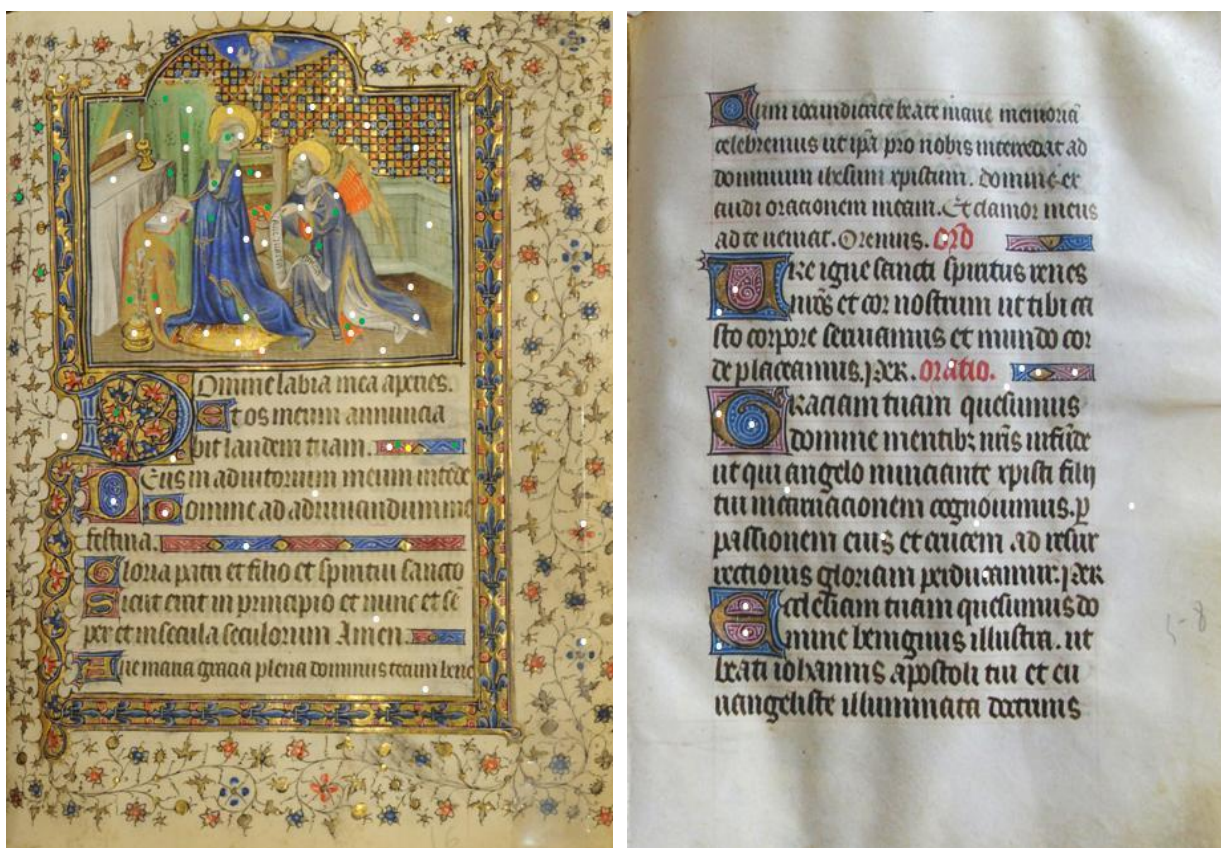 Domine labia mea aperies.
Et os meum annuncia
bit laudem tuam.
Deus in adiutorium meum intēde
Domine ad adiuuandum me
festina.
Gloria patri et filio et spiritui sancto
Sicut erat in principio et nunc et sē
per et in secula seculorum Amen.
Aue maria gracia plena dominus tecum bene
Cum iocunditate beate marie memoriā
celebremus ut ipā pro nobis intercedat ad
dominum ihesum xpistum. domine ex
audi oracionem meam. Et clamor meus
ad te ueniat. Oremus. orō
Ure igne sancti spiritus renes
nrōs et cor nostrum ut tibi ca
sto corpore seruiamus et mundo cor
de placeamus. oratio.
Graciam tuam quesumus
domine mentibz nrīs infūde
ut qui angelo nunciante xpisti filij
tui incarnacionem cognouimus. p̄
passionem eius et crucem ad resur
rectionis gloriam perducamur.
Ecclesiam tuam quesumus do
mine benignus illustra. ut
beati iohannis apostoli tui et eu
uangeliste illuminata doctrinis
5-8